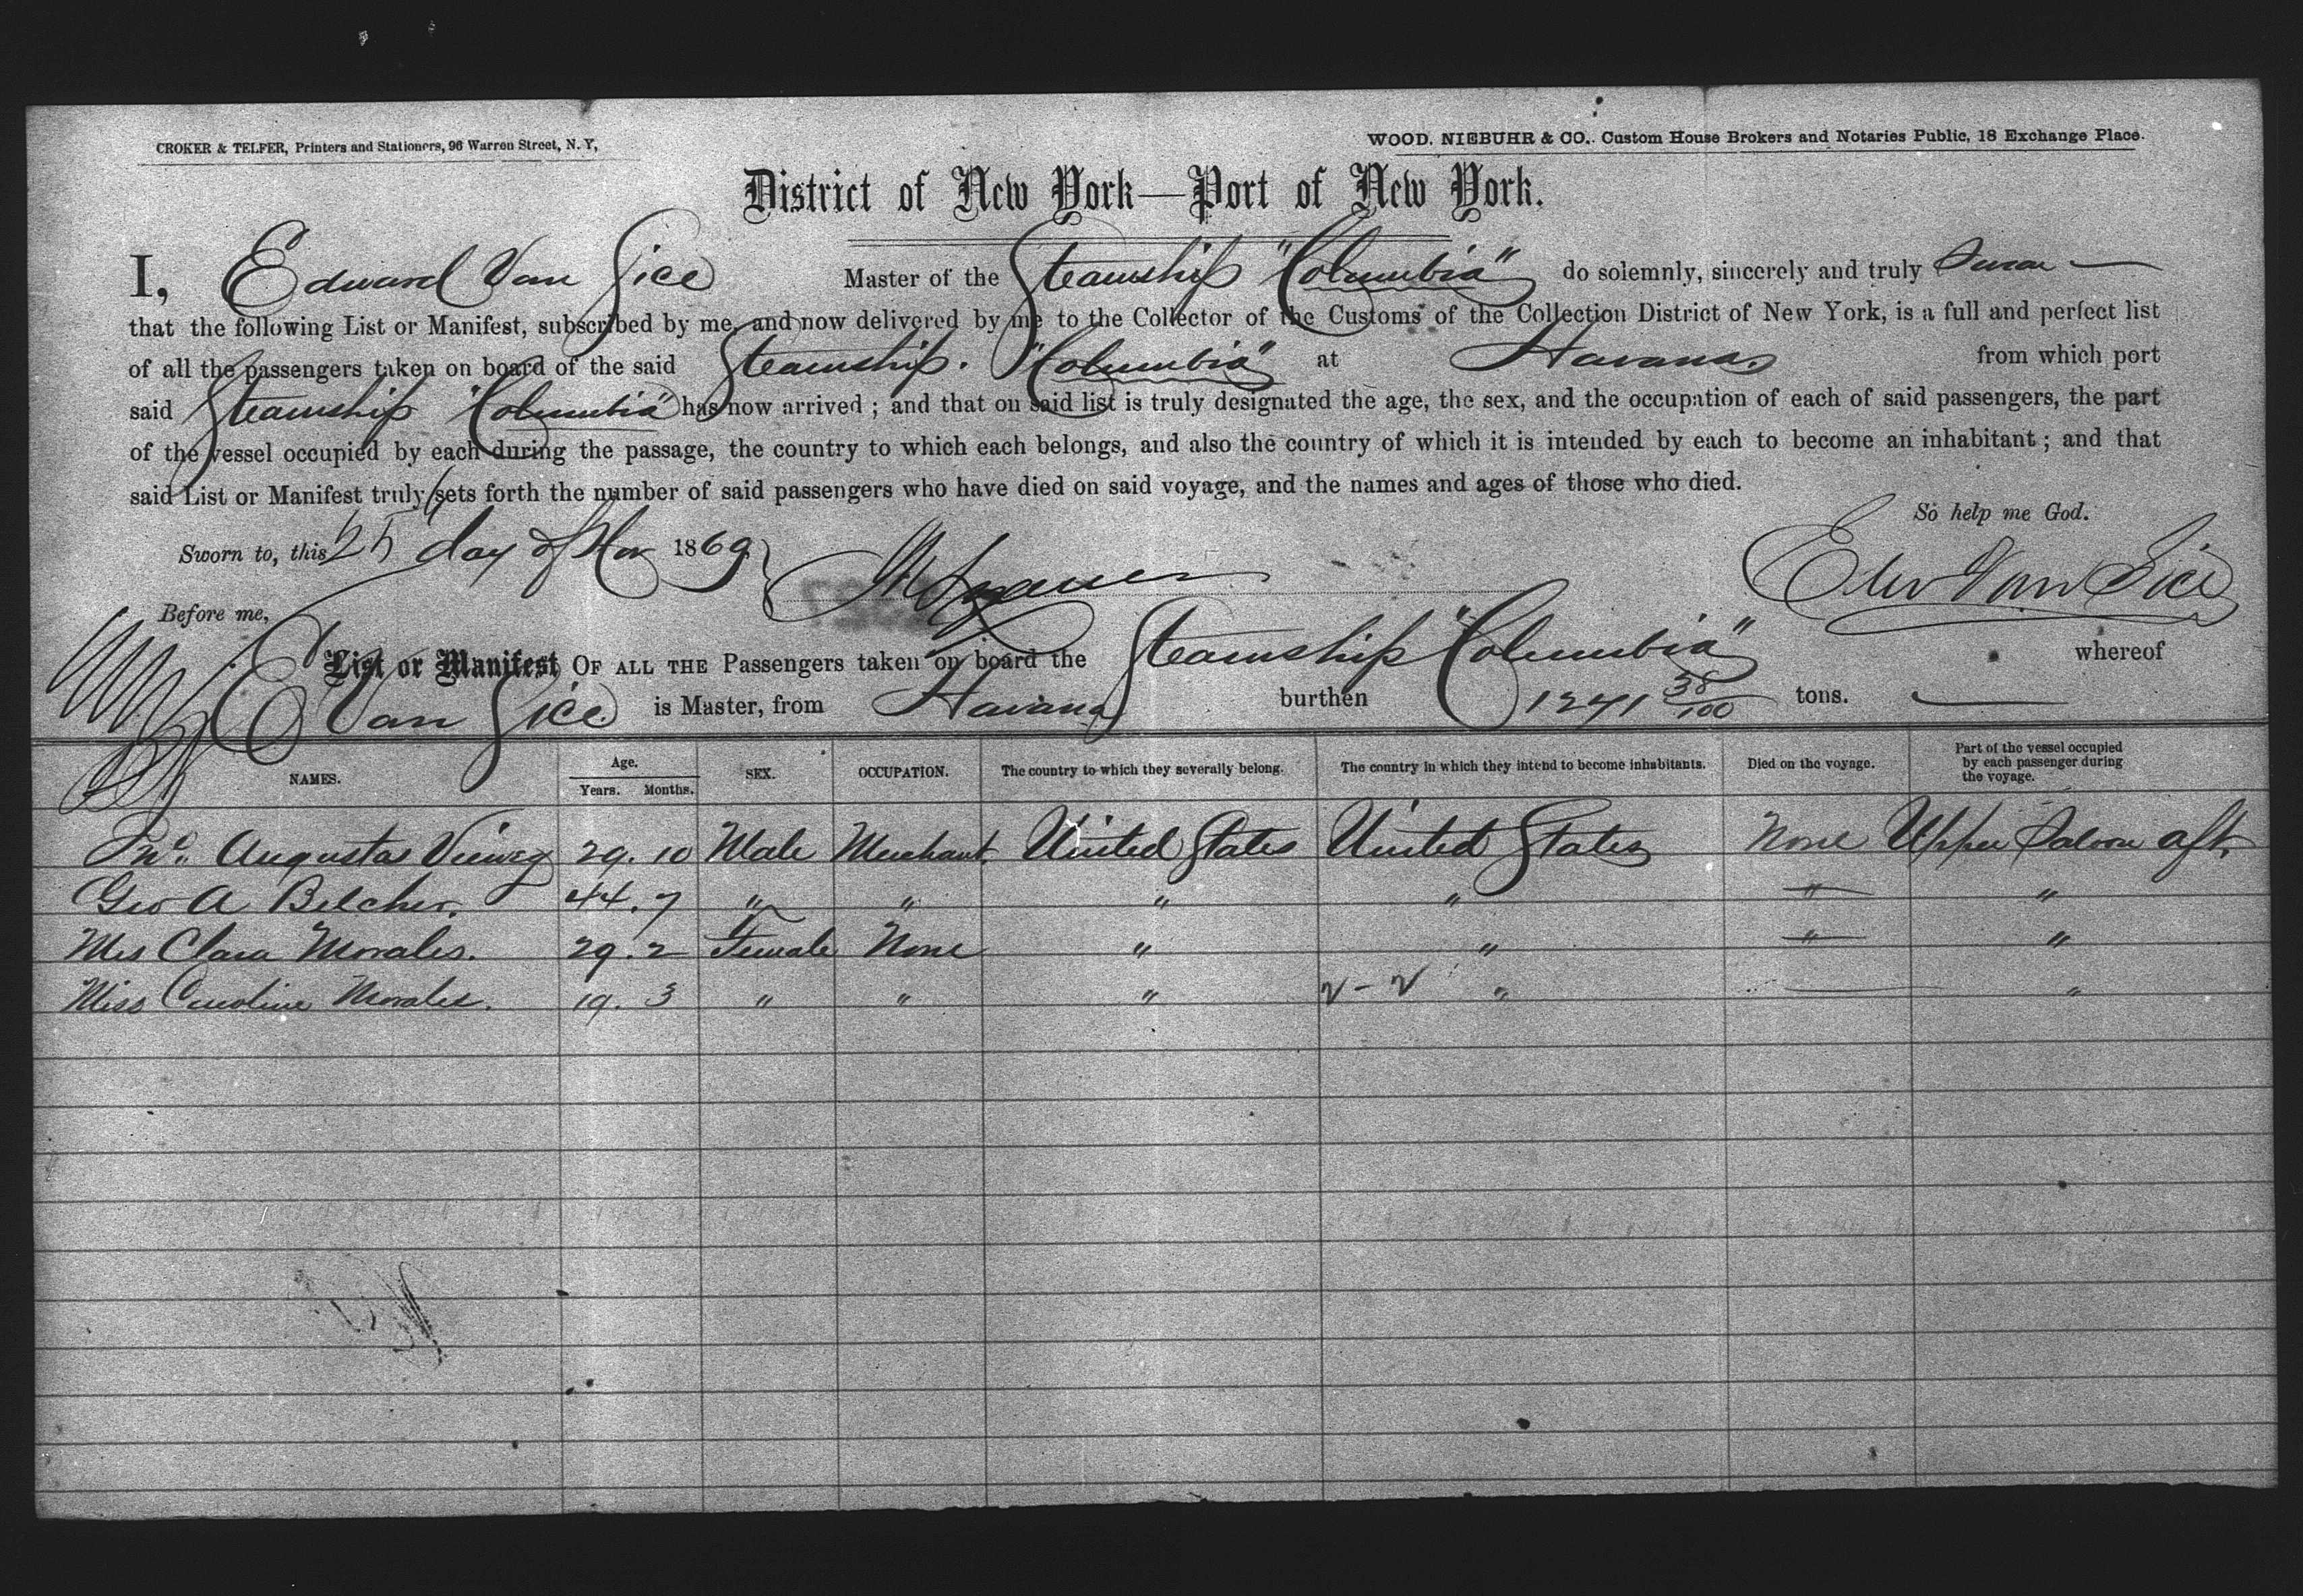 CROKER & TELFER, Printers and Stationers, 96 Warren Street, N. Y,
WOOD. NIEBUHR & CO.. Custom House Brokers and Notaries Public, 18 Exchange Place.
District of New York—Port of New York.
I, Edward Van Sice Master of the Steamship "Columbia" do solemnly, sincerely and truly Swear
that the following List or Manifest, subscribed by me, and now delivered by me to the Collector of the Customs of the Collection District of New York, is a full and perfect list
of all the passengers taken on board of the said Steamship. "Columbia" at Havana. from which port
said Steamship "Columbia" has now arrived ; and that on said list is truly designated the age, the sex, and the occupation of each of said passengers, the part
of the vessel occupied by each during the passage, the country to which each belongs, and also the country of which it is intended by each to become an inhabitant ; and that
said List or Manifest truly sets forth the number of said passengers who have died on said voyage, and the names and ages of those who died.
So help me God.
Sworn to, this 25 day of Nov 1869
Edw Van Sice
Before me,
List or Manifest OF ALL THE Passengers taken on board the Steamship "Columbia" whereof
E Van Sice is Master, from Havana burthen 1241 38/100 tons.
NAMES. Age. Years. Months. SEX. OCCUPATION. The country to which they severally belong. The country in which they intend to become inhabitants. Died on the voyage. Part of the vessel occupied by each passenger during the voyage.
Augustas Vieweg 29. 10 Male Merchant. United States United States None Upper Saloon aft.
Geo A Belcher. 44. 7 " " " " " "
Mrs Clara Morales. 29. 2 Female None " " " "
Miss Caroline Morales. 19. 3 " " " " "